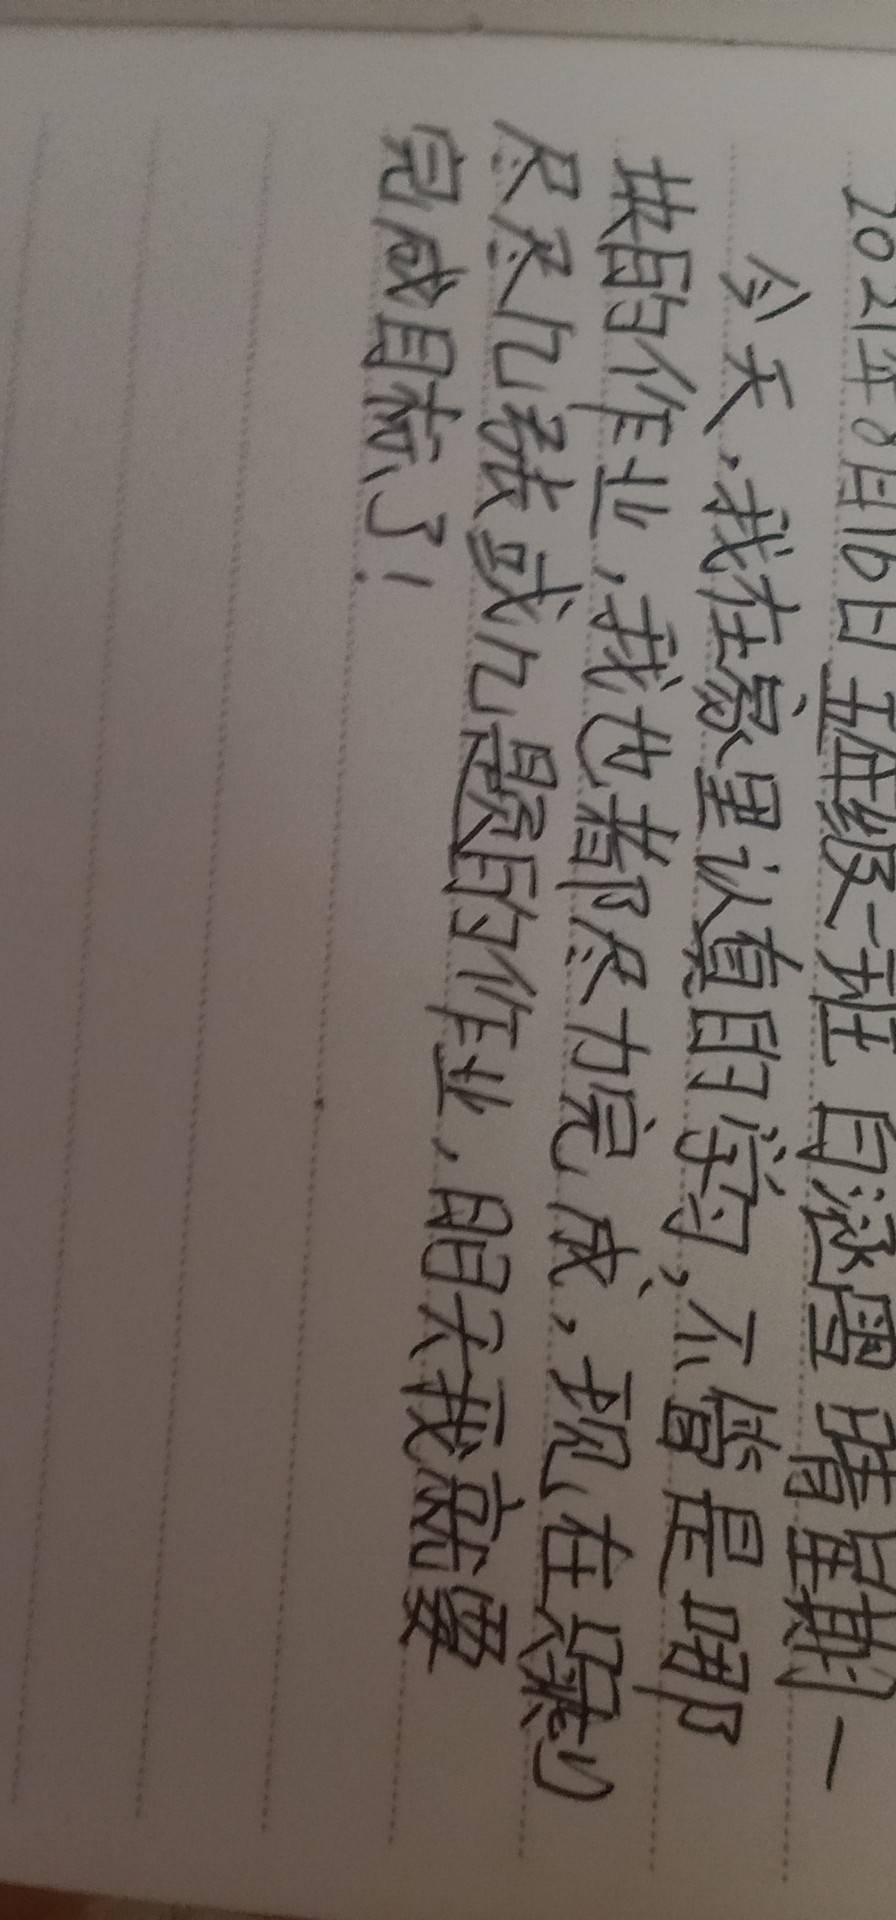 2021年8月16日 五年级一班 闫涵雪 晴 星期一
今天,我在家里认真的学习,不管是哪
块的作业,我也都尽力完成,现在剩
尽尽几张或几题的作业,明天我就要
完成目标了!